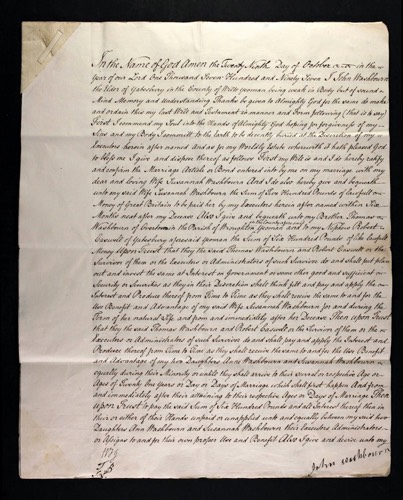 In the Name of God Amen the Twenty Ninth Day of October in the
Year of our Lord One Thousand Seven Hundred and Ninety Seven I John Washbourn
the Elder of in the County of Wilts yeoman being weak in Body but of sound
Mind Memory and Understanding Thanks be given to Almighty God for the same do make
and ordain this my last Will and Testament in manner and Form following (that is to say)
First I commend my Soul into the Hands of Almighty God hoping for forgiveness of my
Sins and my Body I commit to the Earth to be decently buried at the Discretion of my
Executors herein after named And as for my Worldly Estate wherewith it hath pleased God
to bless me I give and dispose thereof as follows First my Will is and I do hereby ratify
and confirm the Marriage Articles or Bond entered into by me on my marriage with my
dear and loving Wife Susannah Washbourn And I do also hereby give and bequeath
unto my said Wife Susannah Washbourn the Sum of Hundred Pounds of lawful
Money of Great Britain to be paid her by my Executors herein after named within Six
Months next after my Decease Also I give and bequeath unto my Brother Thomas
Washbourn of Overtown in the Parish of Wroughton Yeoman and to my Nephew Robert
of aforesaid Yeoman the Sum of Six Hundred Pounds of like lawful
Money Upon Trust that they the said Thomas Washbourn and Robert or the
Survivor of them or the Executors or Administrators of such Survivor do and shall put place
out and invest the same at Interest on Government or some other good and sufficient
Security or Securities as they in their Discretion shall think fit and pay and apply the
Interest and Produce thereof from Time to Time as they shall receive the same to and for the
Use Benefit and Advantage of my said Wife Susannah Washbourn for and during the
Term of her natural Life and from and immediately after her Decease Then upon Trust
that they the said Thomas Washbourn and Robert or the Survivor of them or the
Executors or Administrators of such Survivor do and shall pay and apply the Interest and
Produce thereof from Time to Time as they shall receive the same to and for the Use Benefit
and Advantage of my two Daughters Ann Washbourn and Susannah Washbourn
equally during their Minority or until they shall arrive to their several or respective Age or
Ages of Twenty One Years or Day or Days of Marriage which shall first happen And from
and immediately after their attaining to their respective Ages or Days of Marriage Then
upon Trust to pay the said Sum of Six Hundred Pounds and all Interest thereof then in
their or either of their Hands unpaid or unapplied unto and equally between my said two
Daughters Ann Washbourn and Susannah Washbourn their Executors Administrators
or Assigns to and for their own proper Use and Benefit Also I give and devise unto my
John Washbourn